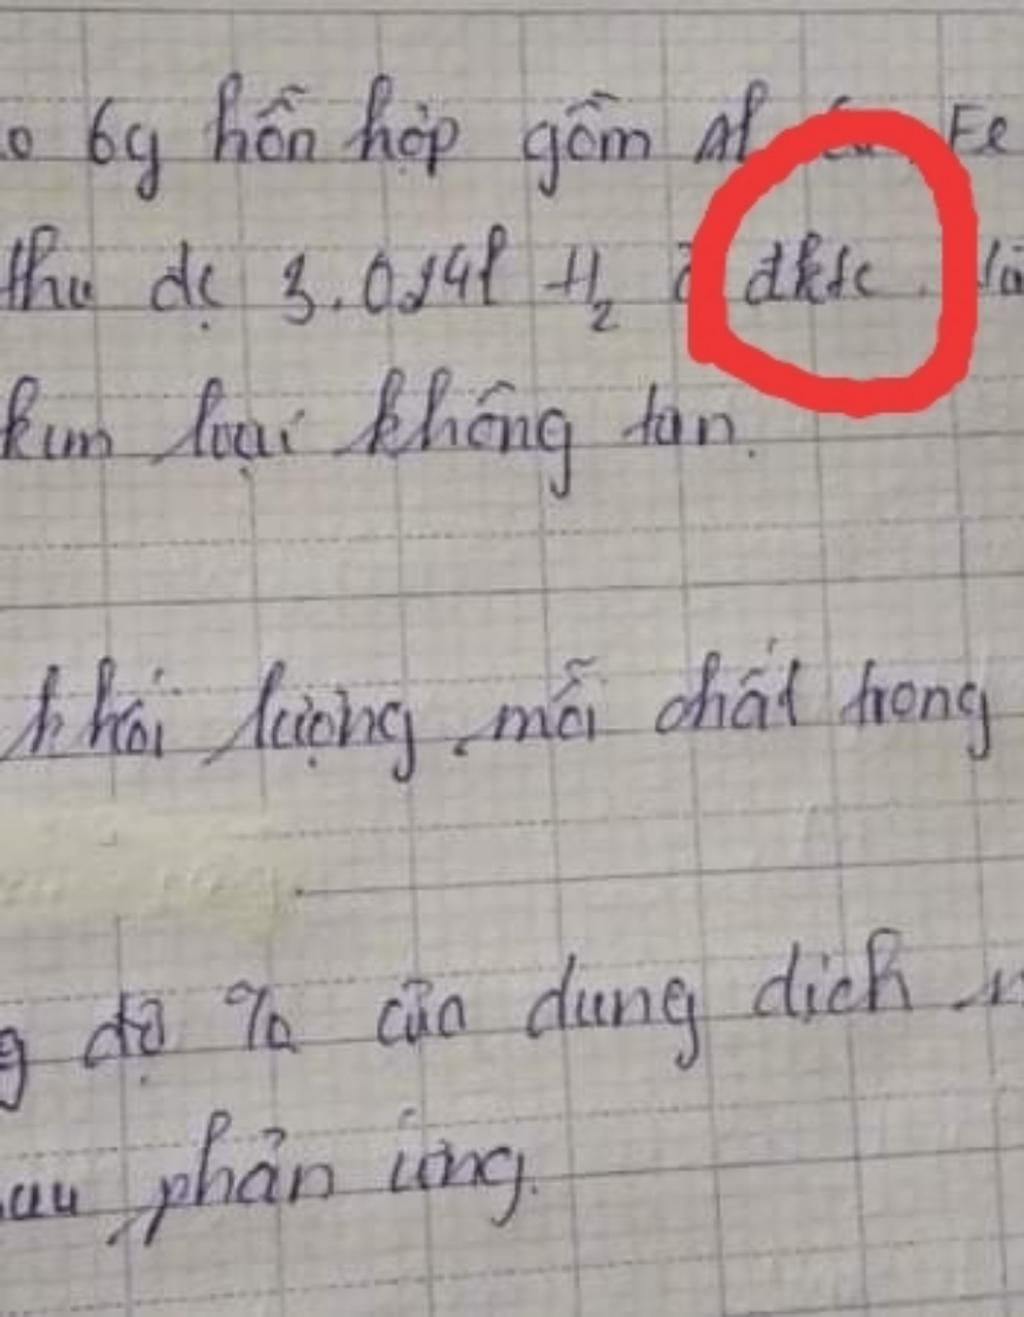 6g hỗn hợp gồm Al, Cu, Fe
thu dc 3.024l H₂ ở đktc.
kim loại không tan.
khối lượng mỗi chất trong
độ % của dung dịch
phản ứng.